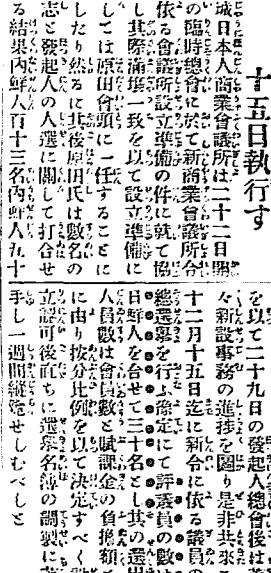 十五日執行す
城日本人商業會議所は二十二日開
の臨時總會に於て新商業會議所令
依る會議所設立準備の件に就て協
し其際滿塲一致を以て設立準備に
しては原田會頭に一任することに
したり然るに其後原田氏は數名の
志と發起人の人選に關して打合せ
る結果內鮮人百十三名內鮮人五十
を以て二十九日の發起人總會後は
々新設事務の進捗を圖り是非共來
十二月十五日迄に新令に依る議員の
總選擧を行ふ豫定にて評議員の數は
日鮮人を合せて三十名とし其の選出
人員數は會員數と賦課金の負擔額
に由り按分比例を以て決定すべく
立認可後直ちに選擧名簿の調製に
手し一週間縱覽せしむべしと